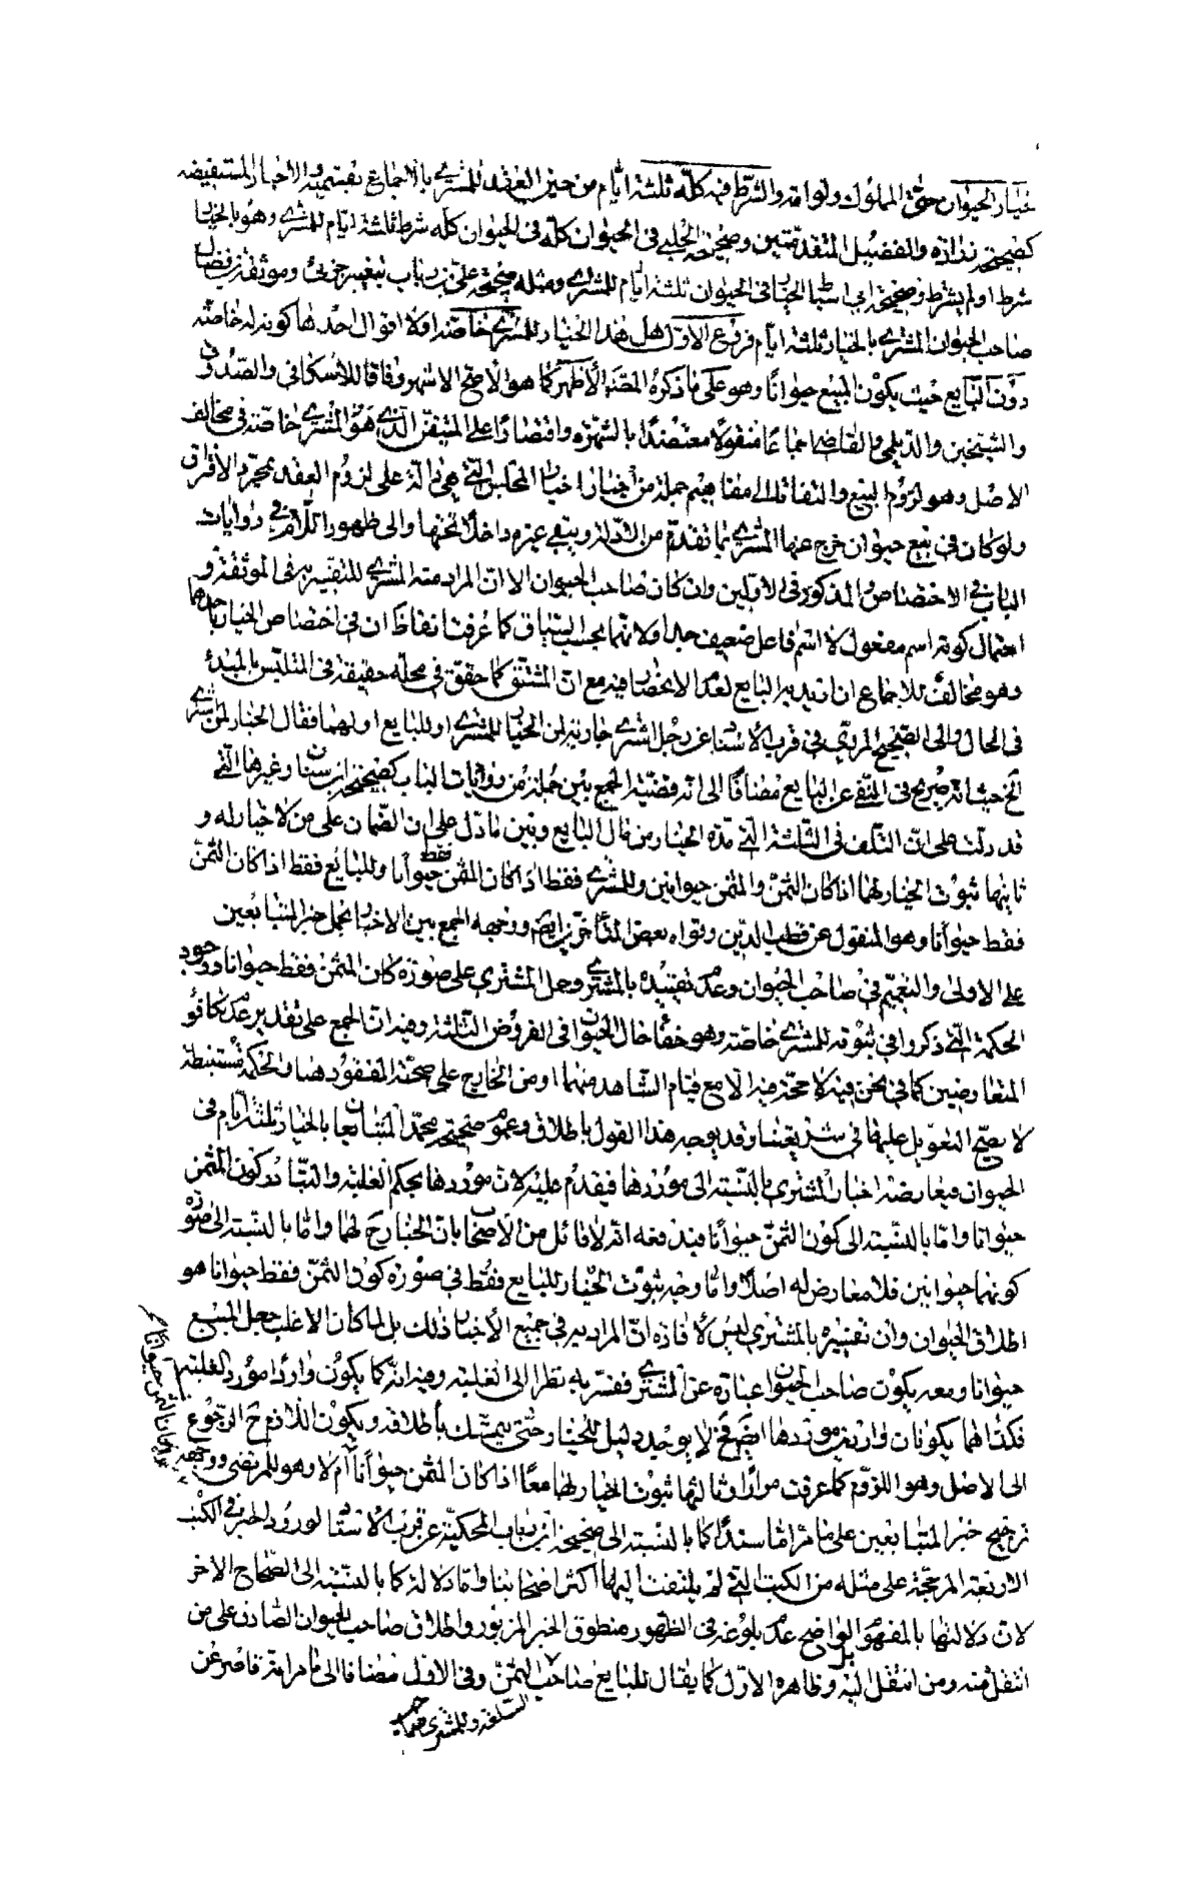 خيار الحيوان حتى المملوك ولو امة والشرط فيه كله ثلثة ايام من حين العقد للمشتري بالاجماع بقسميه والاخبار المستفيضة
كصحيحة زرارة والفضيل المتقدمتين وصحيحة الحلبي في الحيوان كله في الحيوان كله شرط ثلثة ايام للمشتري وهو بالخيار
شرط او لم يشرط وصحيحة ابن اسباط الخيار في الحيوان ثلثة ايام للمشتري ومثله صحيحة علي بن رئاب بتغيير جزئي وموثقة بن فضال
صاحب الحيوان المشتري بالخيار ثلثة ايام فروع الاول هل هذا الخيار للمشتري خاصة او لا اقوال احدها كونه له خاصة
دون البايع حيث يكون المبيع حيوانا وهو على ما ذكره المصنف الاظهر كما هو الاصح الاشهر وفاقا للاسكافي والصدوق
والشيخين والديلمي والقاضي اجماعا منقولا معتضدا بالشهرة واقتصارا على المتيقن الذي هو المشتري خاصة في مخالف
الاصل وهو لزوم البيع والتفاتا الى مفاهيم جملة من اخبار اخيار المجلس التي هي دالة على لزوم العقد بمجرد الافتراق
ولو كان في بيع حيوان خرج عنها المشتري بما تقدم من الادلة وبقي غيره داخلا تحتها والى ظهور اللام في روايات
الباب في الاختصاص والمذكور في الاولين وان كان صاحب الحيوان الا ان المراد منه المشتري للتقييد به في الموثقة و
احتمال كونه اسم مفعول لا اسم فاعل ضعيف جدا ولانهما بحسب السياق كما عرفت اتفاقا ان في اختصاص الخيار باحدهما
وهو مخالف للاجماع ان اريد به البايع لعدم الانحصار فيه مع ان المشتق كما حقق في محله حقيقة في المتلبس بالمبدء
في الحال والى الصحيح المروي في قرب الاسناد عن رجل اشترى جارية لمن الخيار للمشتري او للبايع او لهما فقال الخيار لمن اشترى
الخ حيث انه صريح في النفي عن البايع مضافا الى انه قضية الجمع بين جملة من روايات الباب كصحيحة ابن سنان وغيرها التي
قد دلت على ان التلف في الثلثة التي مدة الخيار من مال البايع وبين ما دل على ان الضمان على من لا خيار له و
ثانيها ثبوت الخيار لهما اذا كان الثمن والمثمن حيوانين وللمشتري فقط اذا كان المثمن فقط حيوانا وللبايع فقط اذا كان الثمن
فقط حيوانا وهو المنقول عن قطب الدين وقواه بعض المتاخرين ايضا ووجه الجمع بين الاخبار بحمل خبر المتبايعين
على الاولى والتعميم في صاحب الحيوان وعدم تقييده بالمشتري وحمل المشتري على صورة كان المثمن فقط حيوانا ووجود
الحكمة التي ذكروا في ثبوته للمشتري خاصة وهو خفاء حال الحيوان في الفروض الثلثة وفيه ان الجمع على تقدير عدم تكافؤ
المتعارضين كما في نحن فيه لا حجة فيه الا مع قيام الشاهد منهما او من الخارج على صحته المفقود هنا والحكمة مستنبطة
لا يصح التعويل عليها في شريعتنا وقد يوجه هذا القول باطلاق وعموم صحيحة محمد المتبايعان بالخيار ثلثة ايام في
الحيوان فيعارضه اخبار المشتري بالنسبة الى موردها فيقدم عليه لان موردها بحكم الغلبة والتبادر كون المثمن
حيوانا واما بالنسبة الى كون الثمن حيوانا فيندفعه انه لا قائل من الاصحاب بان الخيار ح لهما واما بالنسبة الى صورة
كونهما حيوانين فلا معارض له اصلا واما وجه ثبوت الخيار للبايع فقط في صورة كون الثمن فقط حيوانا هو
اطلاق الحيوان وان تفسيره بالمشتري ليس لافادة ان المراد به في جميع الاخبار ذلك بل لما كان الاغلب جعل المبيع
حيوانا ومعه يكون صاحب الحيوان عبارة عن المشتري ففسر به نظرا الى الغلبة وفيه انه كما يكون وارد مورد الغلبة
فكذا هما يكونان واردين موردها ايضا فح لا يوجد دليل للخيار حتى يتمسك باطلاقه ويكون اللازم ح الرجوع
الى الاصل وهو اللزوم كما عرفت مرارا وثالثها ثبوت الخيار لهما معا اذا كان المثمن حيوانا ام لا وهو للمرتضى ووجهه
ترجيح خبر المتبايعين على ما مر اما سندا كما بالنسبة الى صحيحة ابن رئاب المحكية عن قرب الاسناد لورود الخبر في الكتب
الاربعة المرجحة على مثله من الكتب التي لم يلتفت اليها اكثر اصحابنا واما دلالة كما بالنسبة الى الصحاح الاخر
لان دلالتها بالمفهوم الواضح عدم بلوغه في الظهور منطوق الخبر المزبور واطلاق صاحب الحيوان الصادق على من
انتقل منه ومن انتقل اليه بل وظاهره الاول كما يقال للبايع صاحب الثمن وفي الاول مضافا الى ما مر انه قاصر عن
السلعة وللمشتري صاحب